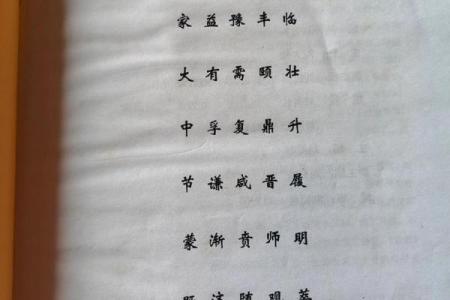 家益豫丰临
大有需颐壮
中孚复鼎升
节谦咸晋履
蒙渐贲师明
随观萃